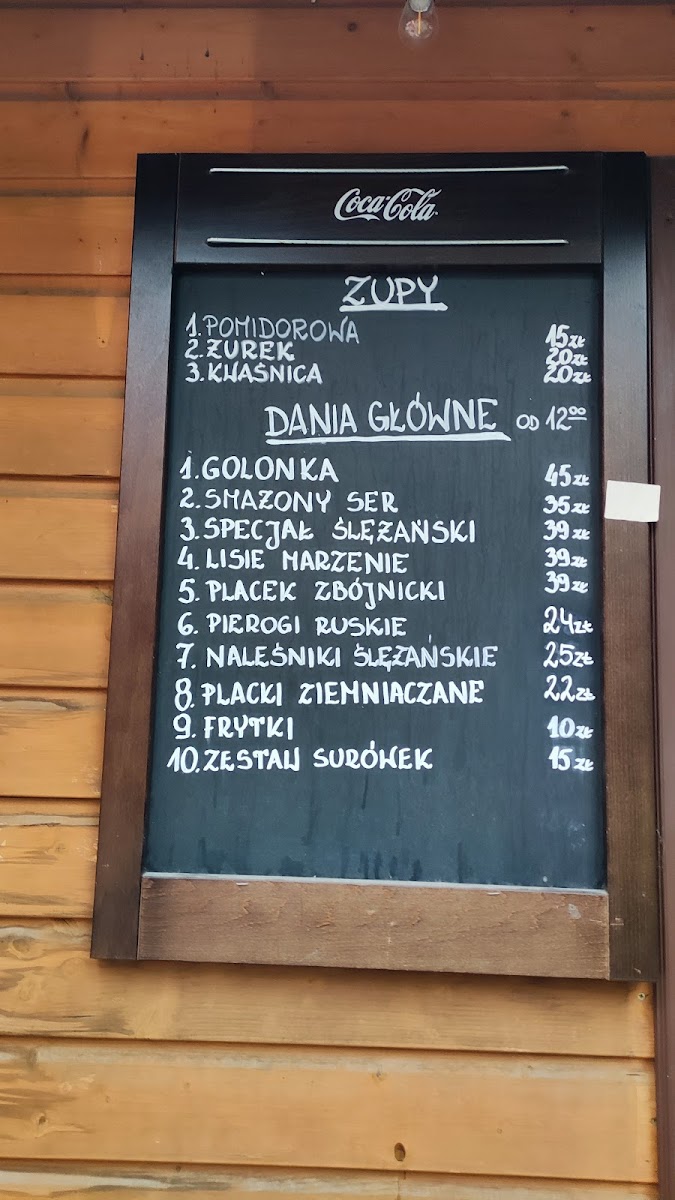 Coca-Cola
ZUPY
1. POMIDOROWA 15 ZŁ
2. ŻUREK 20 ZŁ
3. KWAŚNICA 20 ZŁ
DANIA GŁÓWNE OD 12⁰⁰
1. GOLONKA 45 ZŁ
2. SMAŻONY SER 35 ZŁ
3. SPECJAŁ ŚLĘŻAŃSKI 39 ZŁ
4. LISIE MARZENIE 39 ZŁ
5. PLACEK ZBÓJNICKI 39 ZŁ
6. PIEROGI RUSKIE 24 ZŁ
7. NALEŚNIKI ŚLĘŻAŃSKIE 25 ZŁ
8. PLACKI ZIEMNIACZANE 22 ZŁ
9. FRYTKI 10 ZŁ
10. ZESTAW SURÓWEK 15 ZŁ